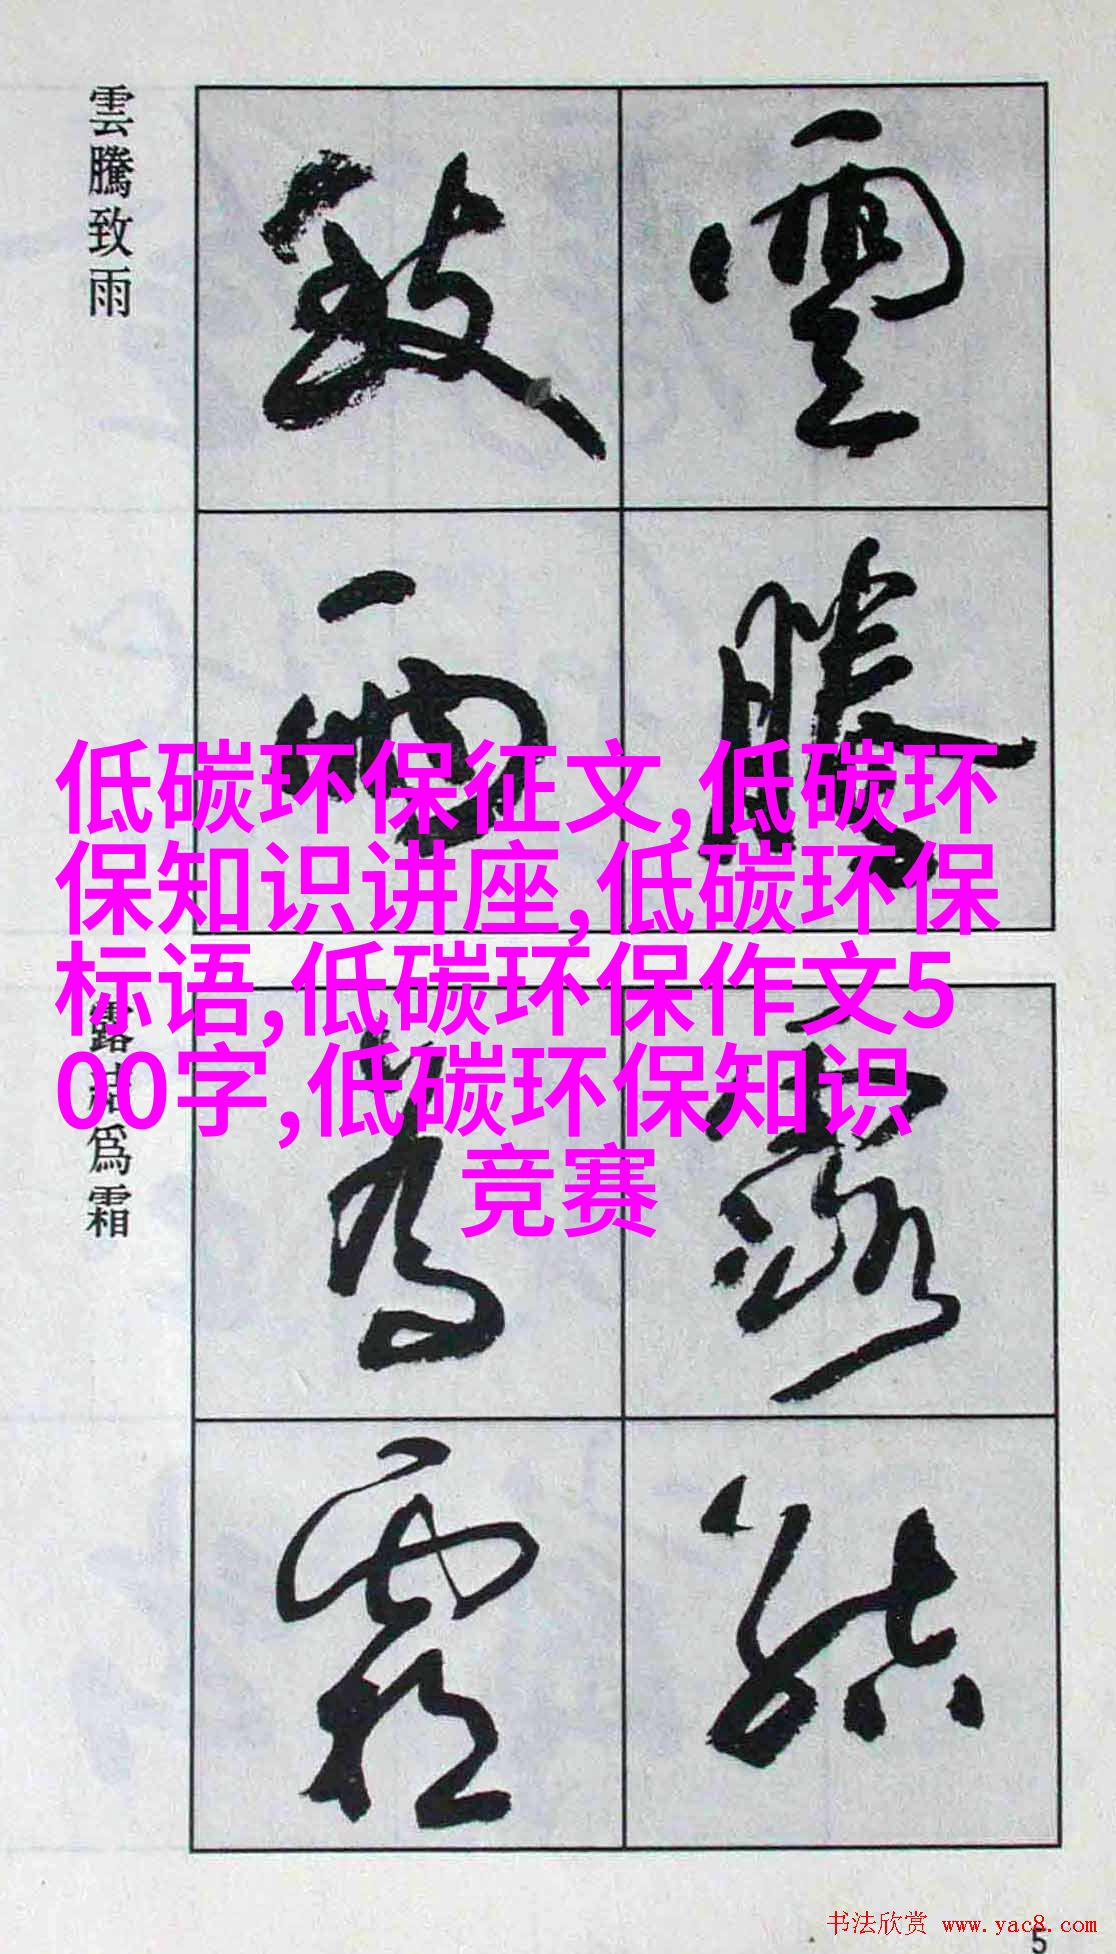 雲騰致雨
雲騰
致雨
低碳环保征文,低碳环
保知识讲座,低碳环保
标语,低碳环保作文5
00字,低碳环保知识
竞赛
露結為霜
露結
為霜
书法欣赏 www.yac8.com
5